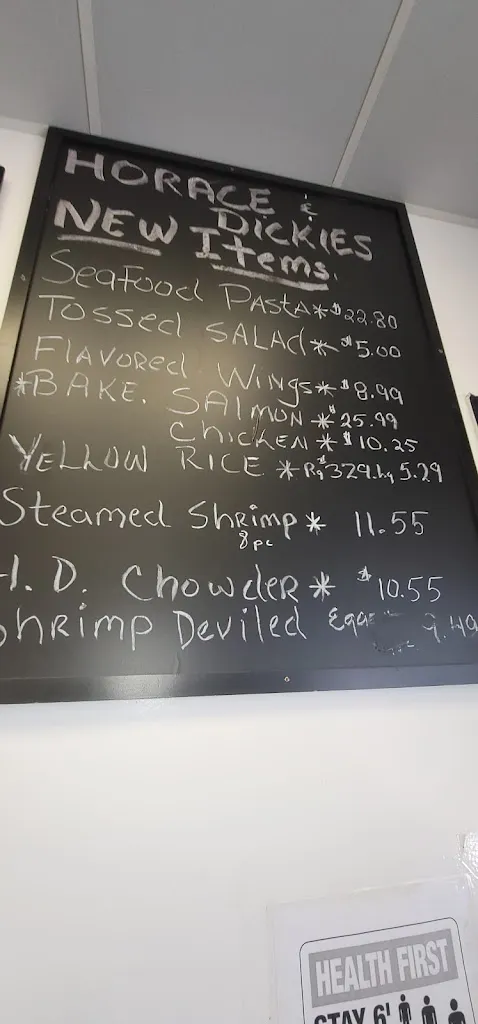 HORACE &
DICKIES
NEW Items.
Seafood Pasta * $22.80
Tossed Salad * $5.00
Flavored Wings * $8.99
*BAKE. SALMON * $25.99
ChicKEN * $10.25
YELLOW RICE * Rg $3.29 Lg 5.29
Steamed Shrimp * 11.55
8pc
H. D. Chowder * $10.55
Shrimp Deviled Eggs 9.49
HEALTH FIRST
STAY 6'